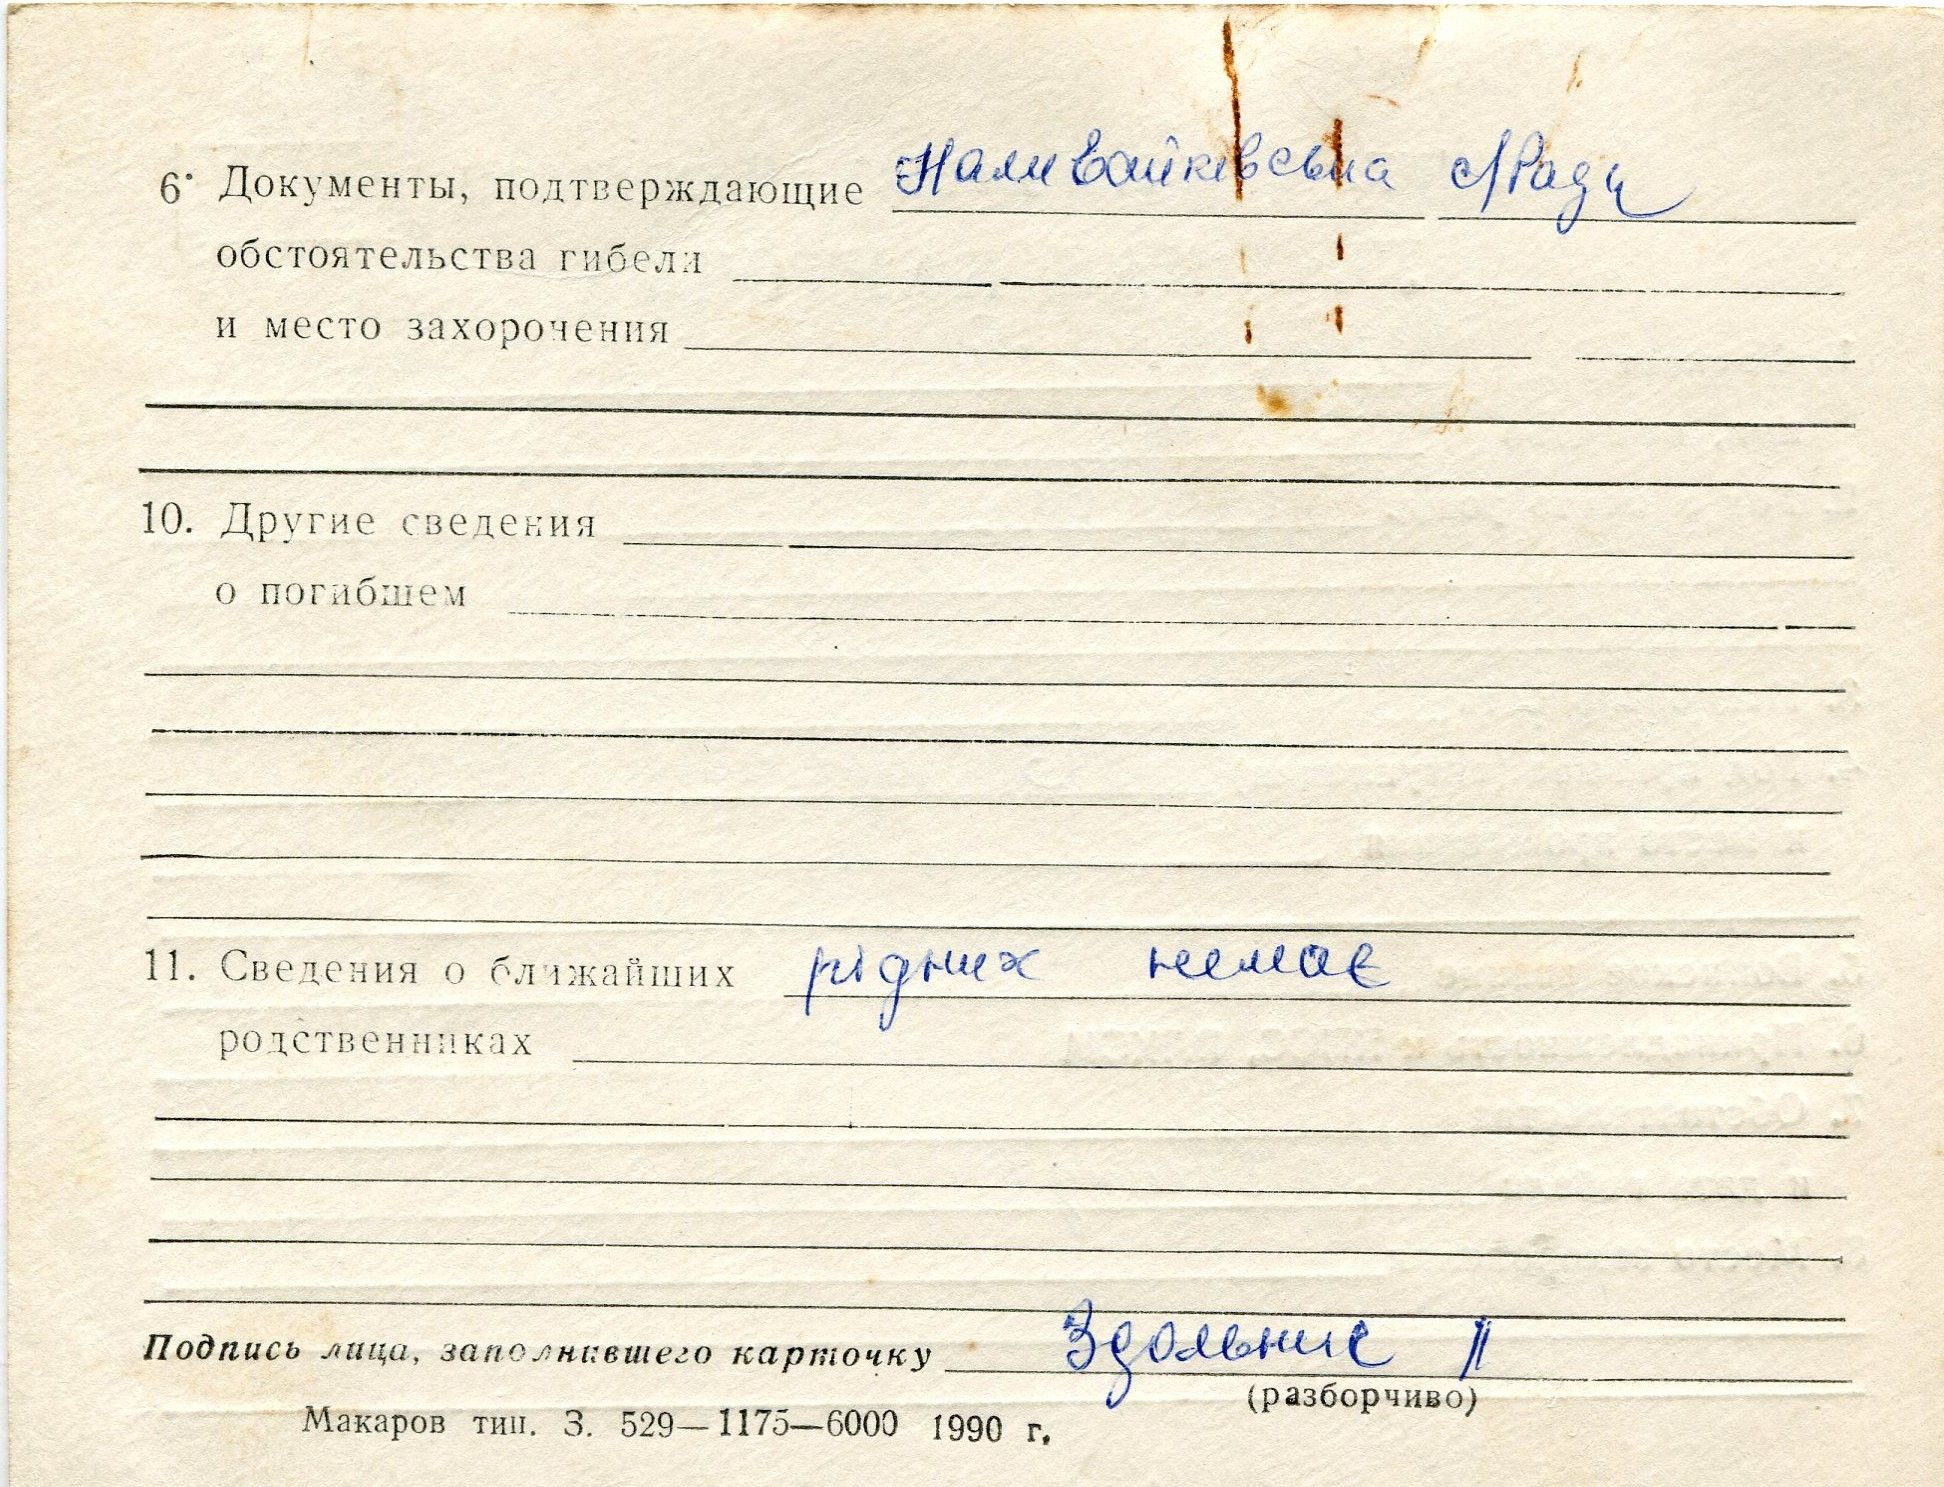 6. Документы, подтверждающие Наливайківська с/Рада
обстоятельства гибели
и место захорочения
10. Другие сведения
о погибшем
11. Сведения о ближайших рідних немає
родственниках
Подпись лица, заполнившего карточку
(разборчиво)
Макаров тип. З. 529—1175—6000 1990 г.